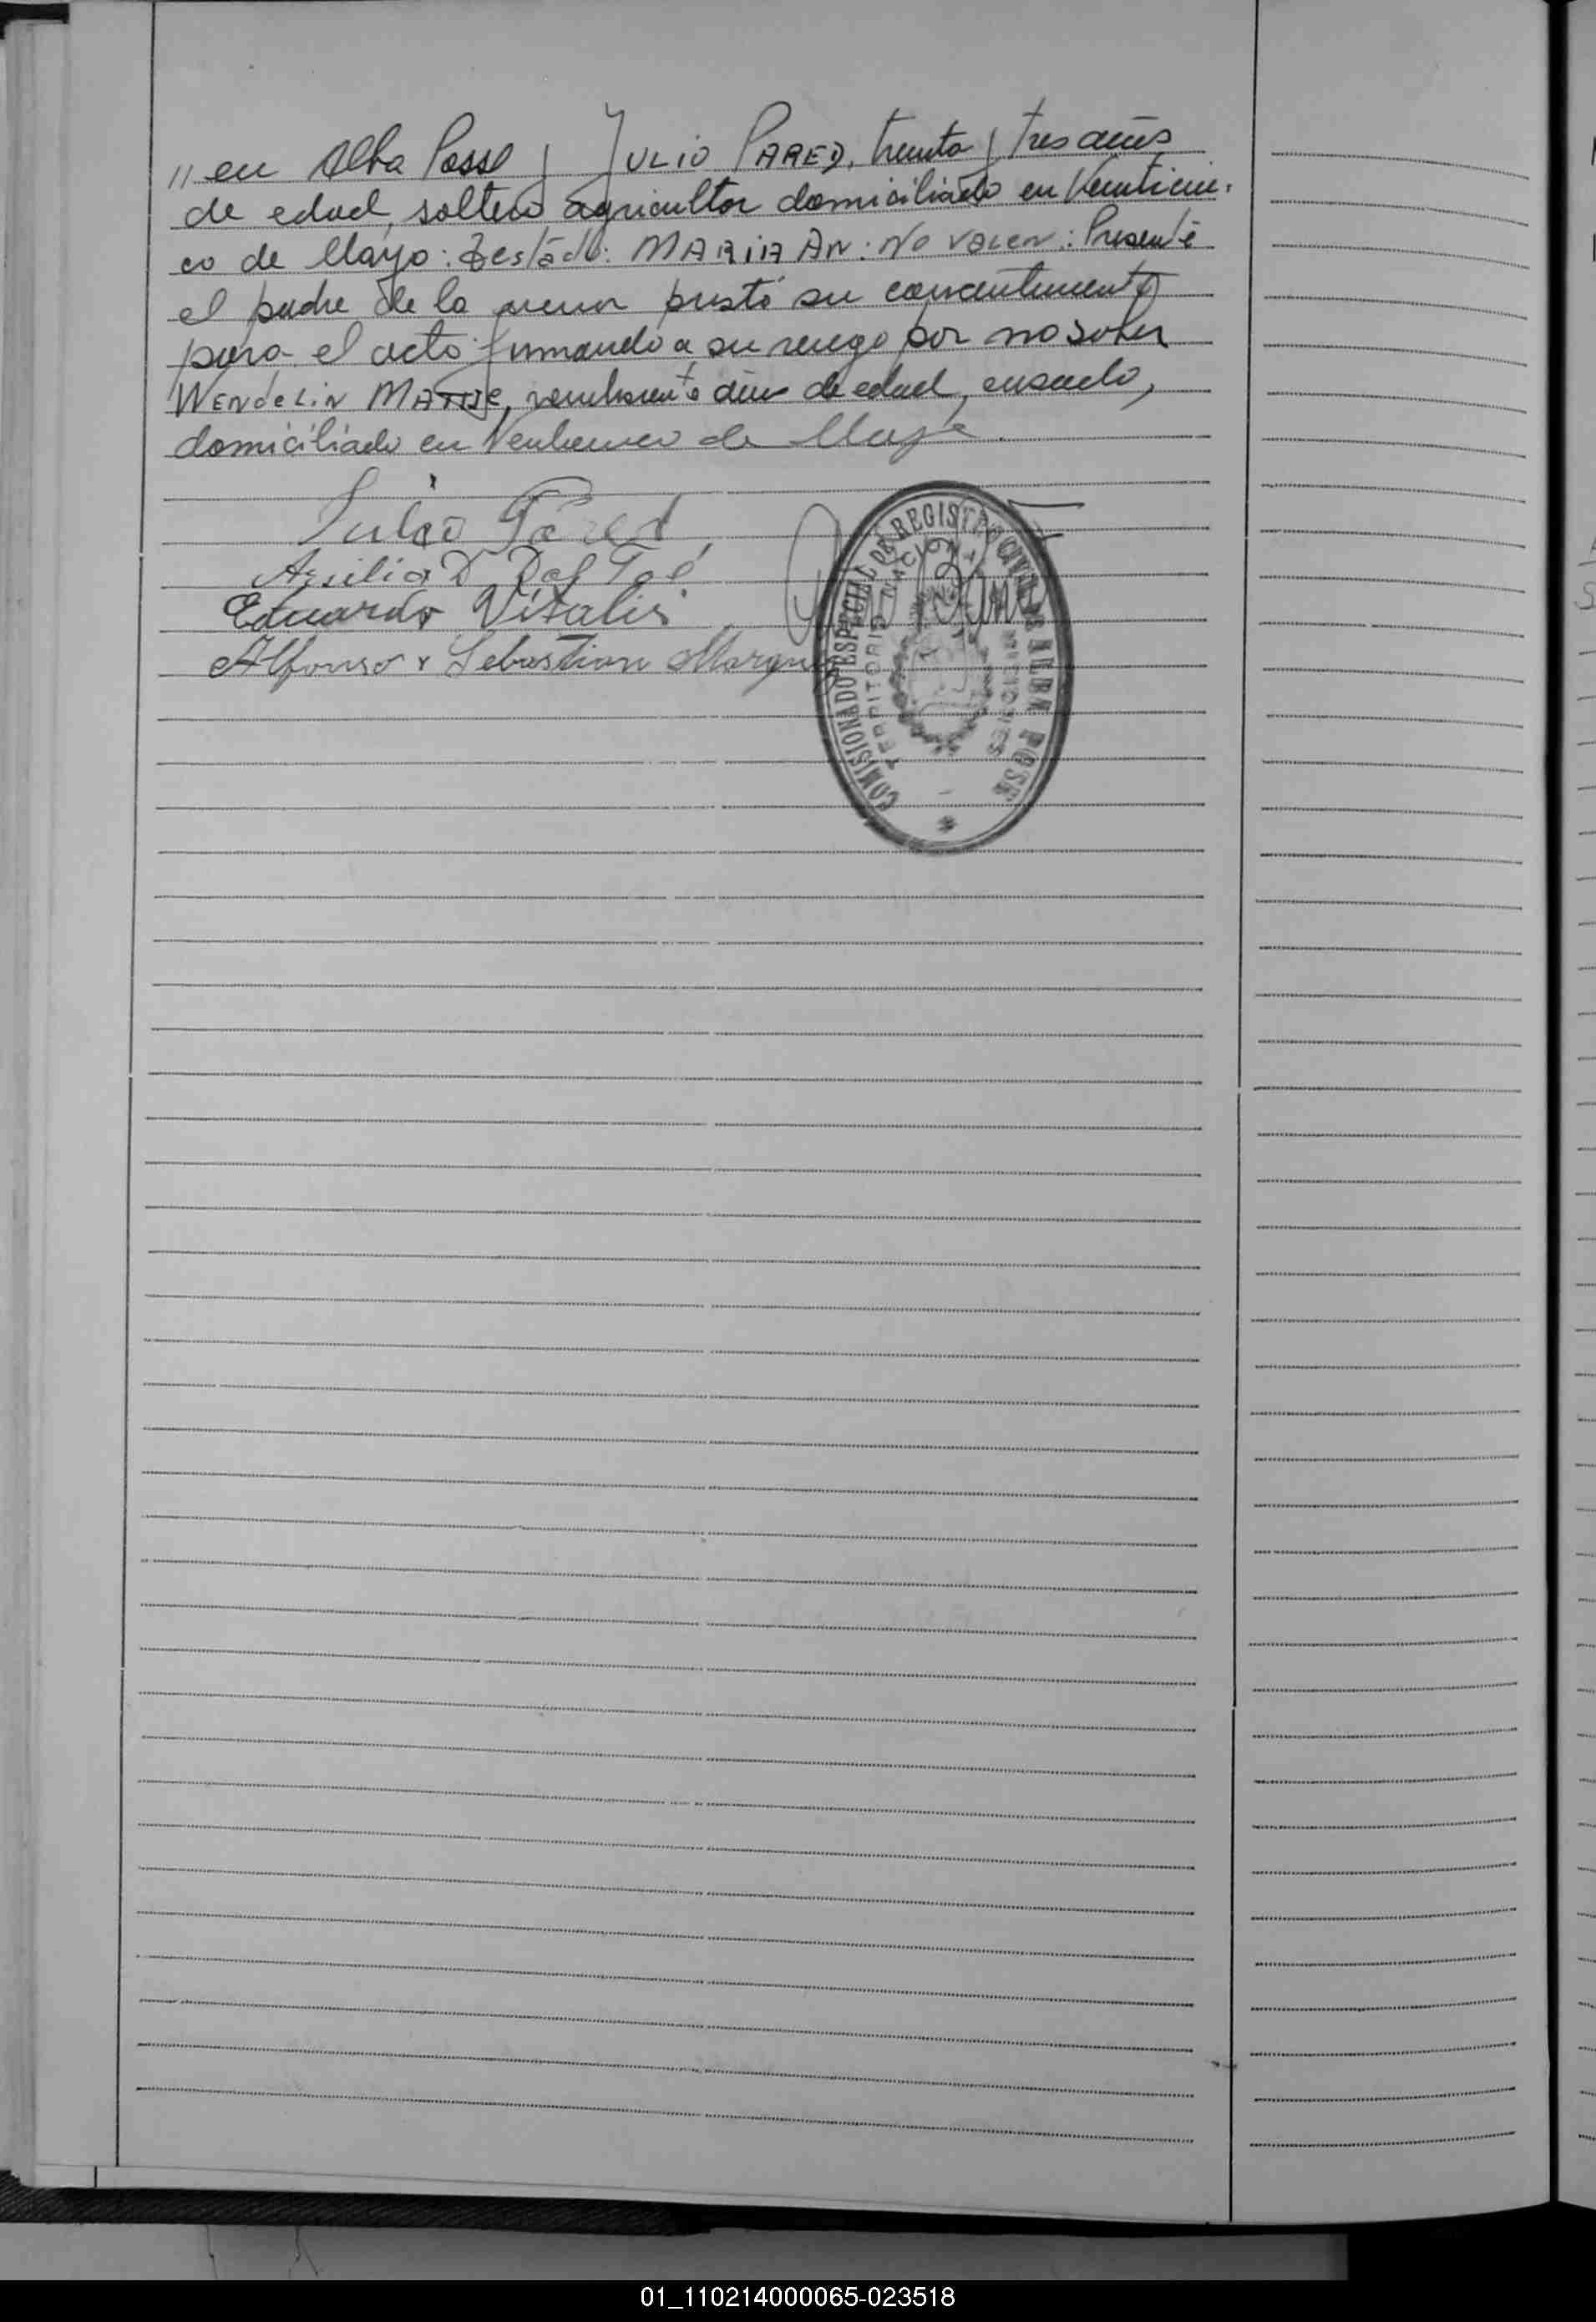 " en Alba Posse y JULIO PARED, treinta y tres años
de edad, soltero agricultor domiciliado en Veinticin-
co de Mayo: Testado: MARIA AN: No valen: Presente
el padre de la menor prestó su consentimiento
para el acto firmando a su ruego por no saber
WENDELIN MATTJE, años de edad, casado,
domiciliado en Veinticinco de Mayo.
Julio Pared
D. Dal Toé
Eduardo Vitalis
Alfonso Sebastian
COMISIONADO ESPECIAL DE REGISTRO CIVIL DE ALBA POSSE
TERRITORIO NACIONAL MISIONES
01_110214000065-023518